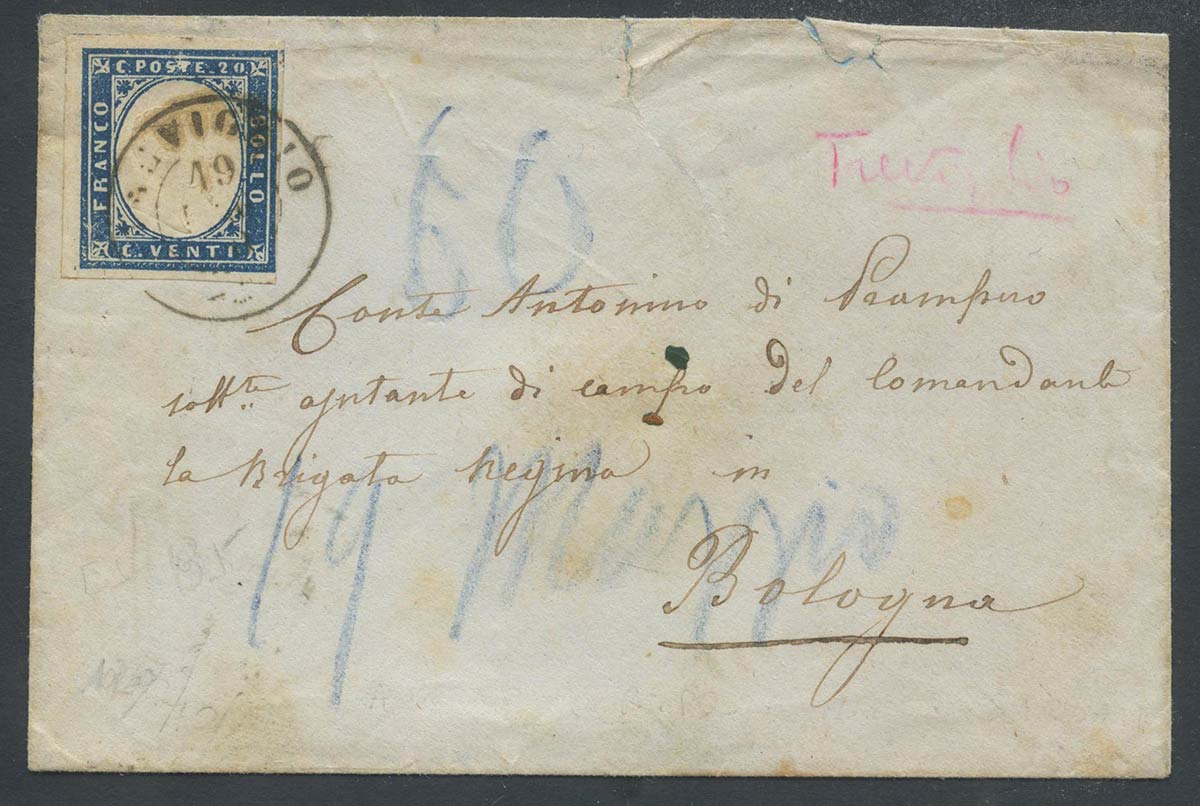 C. POSTE. 20
FRANCO
BOLLO
C. VENTI
19
60
Treviglio
Conte Antonino di Prampero
sottte ajutante di campo del Comandante
la Brigata Regina in
19 Maggio
Bologna